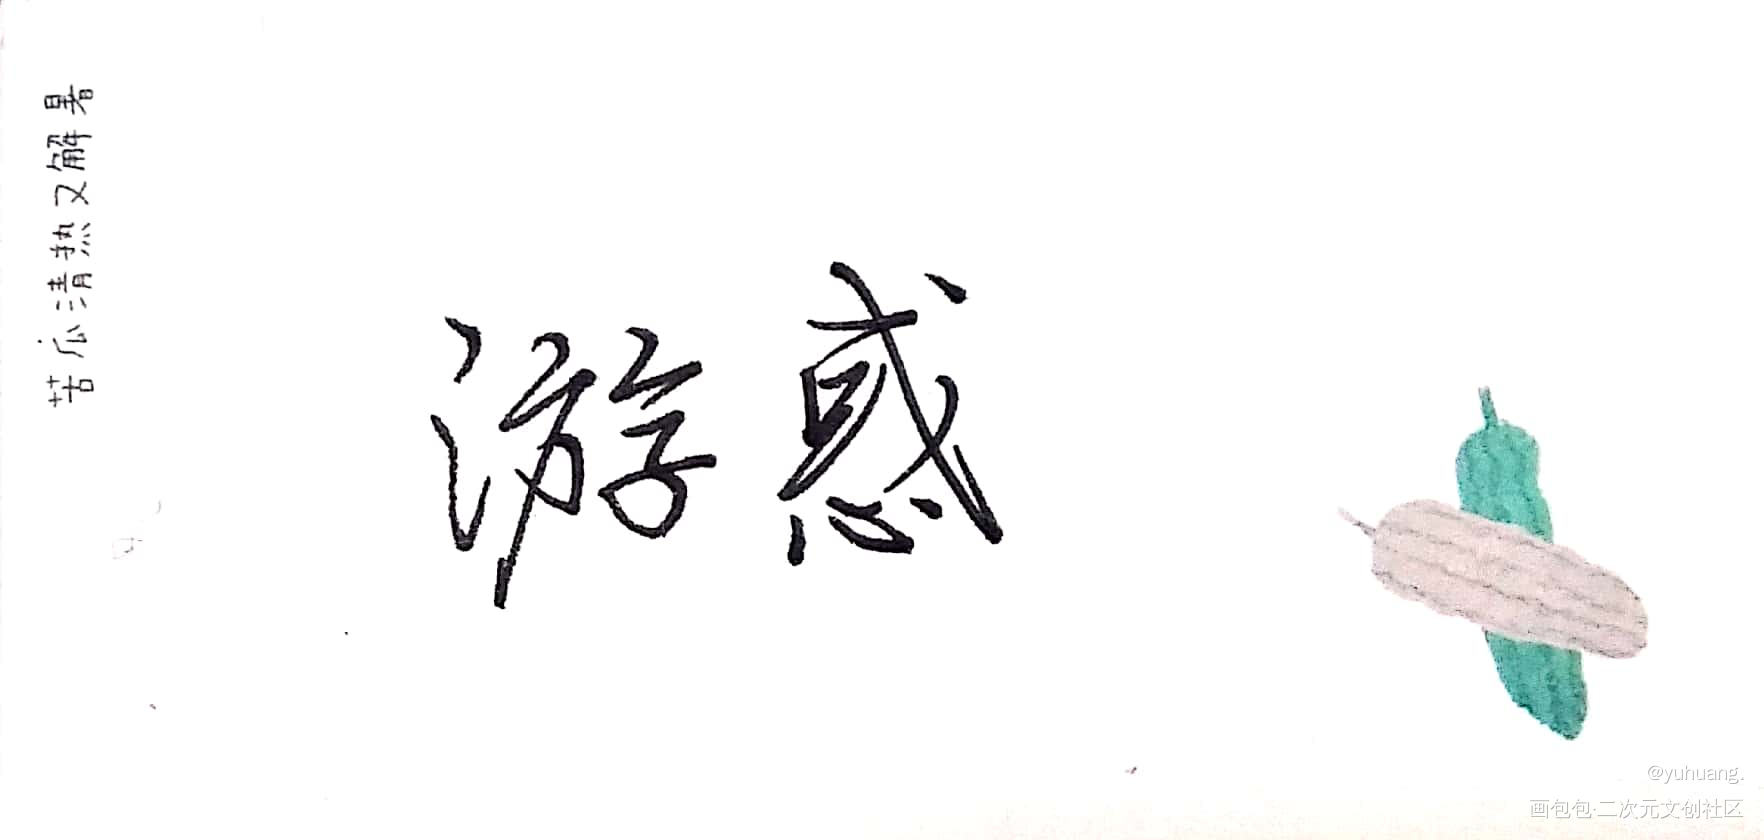 苦瓜清热又解暑
游惑
@yuhuang.
画包包·二次元文创社区